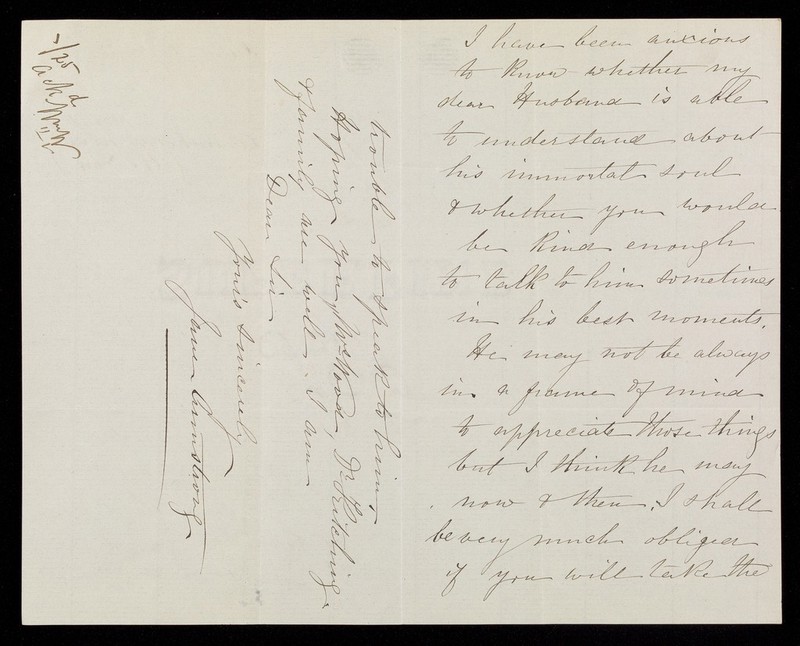 I have been anxious
to know whether my
dear Husband is able
to understand about
his immortal soul
& whether you would
be kind enough
to talk to him sometimes
in his best moments.
He may not be always
in a frame of mind
to appreciate those things
but I think he may
now & then, I shall
be very much obliged
if you will take the
trouble to speak to him,
Hoping you, Mrs Wood, Dr Kitching
& family are well. I am
Dear Sir
Yours sincerely
Jane Armstrong
ackd